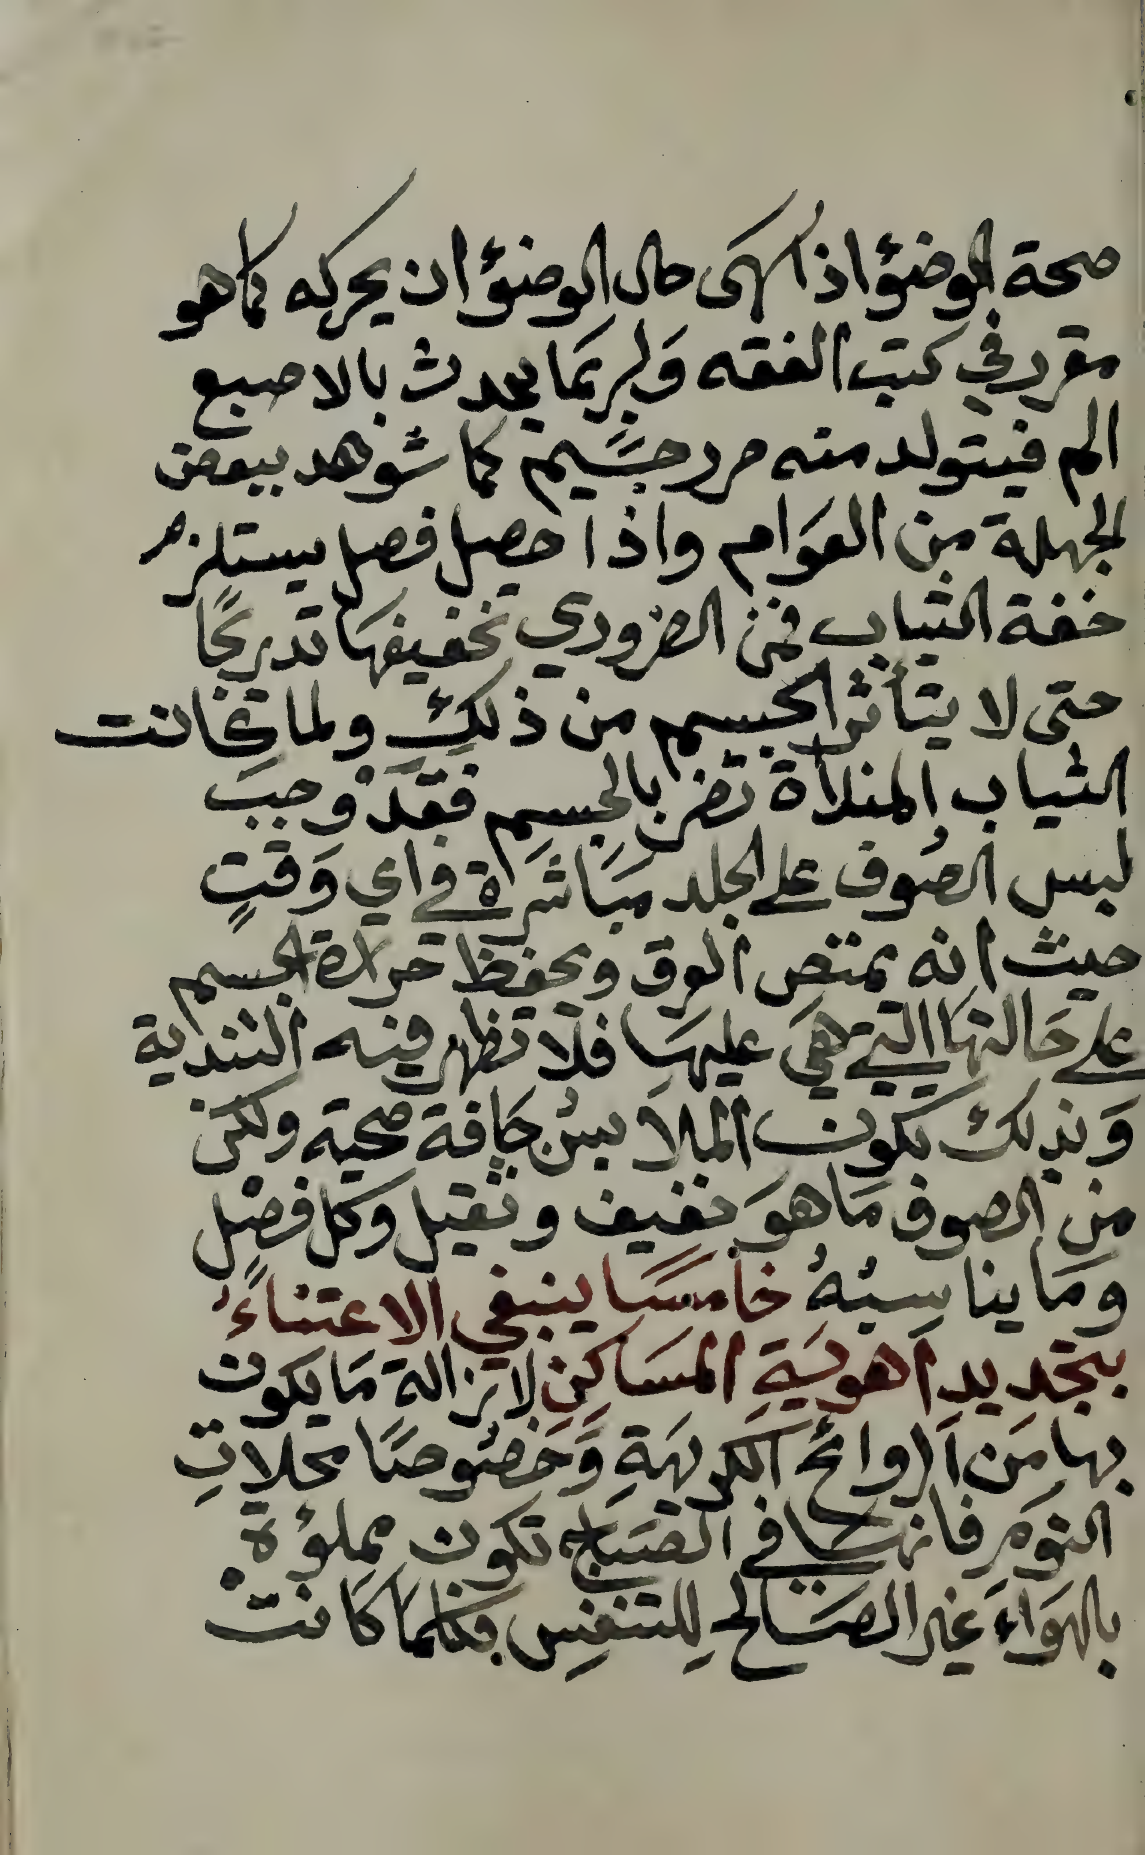 صحة الوضؤ اذا سهى حال الوضؤ ان يحركه كما هو
مقرر في كتب الفقه وَلربمَا يحدث بالاصبع
الم فيتولد منه ضرر جسَيم كما شوهد ببعض
الجهلة من العوَام واذا حصل فصل يستلزم
خفة الثياب فمن الضروري تخفيفهَا تدريجًا
حتى لا يتأثر الجسم من ذلك ولما كانت
الثياب المنداة تضر بالجسم فقَدْ وجبَ
لبس الصُوف على الجلد مبَاشَرة في اي وَقتٍ
حيث انه يمتص العرق ويحفظ حرارة الجسم
على حَالتهَا التي هيَ عليهَا فلا تظهر فيه التندية
وَبذلك تكون الملابسُ جَافة صحية ولكن
من الصوف مَا هوَ خفيف وثقيل وكل فصْل
ومَا يناسِبُهُ خامسًا ينبغي الاعتناءُ
بتجديد اهويَةِ المسَاكِنِ لازالة مَا يكون
بها مَن الروائح الكريهَةِ وَخصُوصًا محلاتِ
النومِ فانهَا في الصبَاح تكون مملؤة
بالهوَاء غير الصَالح لِلتنفسِ فكلمَا كَانت